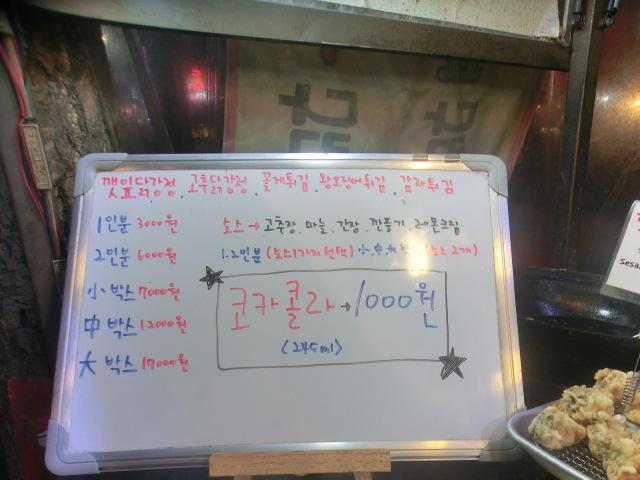 깻잎닭강정 고추닭강정 꽃게튀김 왕오징어튀김 감자튀김
1인분 3000원
소스 → 고추장. 마늘. 간장. 깐풍기. 레몬크림
2인분 6000원
1.2인분 (소스1가지 선택) 小.中.大 박스 (소스 2개)
小 박스 7000원
中 박스 12000원
大 박스 17000원
코카콜라 → 1000원
<245ml>
Sesa